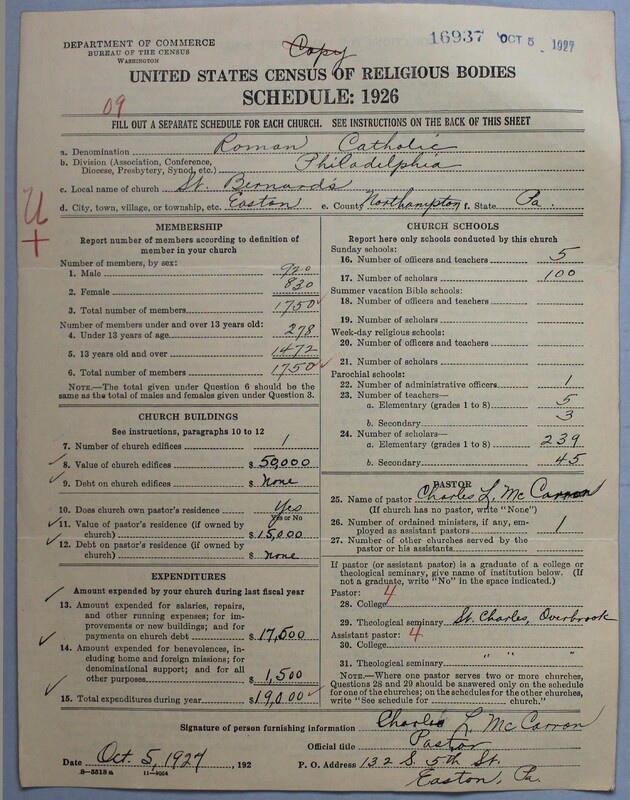 DEPARTMENT OF COMMERCE
BUREAU OF THE CENSUS
WASHINGTON
Copy
16937 OCT 5 1927
UNITED STATES CENSUS OF RELIGIOUS BODIES
SCHEDULE: 1926
09
FILL OUT A SEPARATE SCHEDULE FOR EACH CHURCH. SEE INSTRUCTIONS ON THE BACK OF THIS SHEET
a. Denomination Roman Catholic
b. Division (Association, Conference, Diocese, Presbytery, Synod, etc.) Philadelphia
c. Local name of church St. Bernard's
d. City, town, village, or township, etc. Easton e. County Northampton f. State Pa.
U
+
MEMBERSHIP
Report number of members according to definition of
member in your church
Number of members, by sex:
1. Male 920
2. Female 830
3. Total number of members 1750
Number of members under and over 13 years old:
4. Under 13 years of age 278
5. 13 years old and over 1472
6. Total number of members 1750
NOTE.—The total given under Question 6 should be
same as the total of males and females given under Question 3.
CHURCH BUILDINGS
See instructions, paragraphs 10 to 12
7. Number of church edifices 1
8. Value of church edifices $ 50,000
9. Debt on church edifices $ None
10. Does church own pastor's residence Yes
Yes or No
11. Value of pastor's residence (if owned by
church) $ 15,000
12. Debt on pastor's residence (if owned by
church) $ none
EXPENDITURES
Amount expended by your church during last fiscal year
13. Amount expended for salaries, repairs,
and other running expenses; for im-
provements or new buildings; and for
payments on church debt $ 17,500
14. Amount expended for benevolences, in-
cluding home and foreign missions; for
denominational support; and for all
other purposes $ 1,500
15. Total expenditures during year $ 19,000
CHURCH SCHOOLS
Report here only schools conducted by this church
Sunday schools:
16. Number of officers and teachers 5
17. Number of scholars 100
Summer vacation Bible schools:
18. Number of officers and teachers
19. Number of scholars
Week-day religious schools:
20. Number of officers and teachers
21. Number of scholars
Parochial schools:
22. Number of administrative officers 1
23. Number of teachers—
a. Elementary (grades 1 to 8) 5
b. Secondary 3
24. Number of scholars—
a. Elementary (grades 1 to 8) 239
b. Secondary 45
PASTOR
25. Name of pastor Charles L. McCarron
(If church has no pastor, write "None")
26. Number of ordained ministers, if any, em-
ployed as assistant pastors 1
27. Number of other churches served by the
pastor or his assistants
If pastor (or assistant pastor) is a graduate of a college or
theological seminary, give name of institution below. (If
not a graduate, write "No" in the space indicated.)
Pastor: 4
28. College
29. Theological seminary St. Charles, Overbrook
Assistant pastor: 4
30. College
31. Theological seminary " " "
NOTE.—Where one pastor serves two or more churches,
Questions 28 and 29 should be answered only on the schedule
for one of the churches; on the schedules for the other churches,
write "See schedule for church."
Signature of person furnishing information Charles L. McCarron
Official title Pastor
Date Oct. 5, 1927, 192 P. O. Address 132 S. 5th St.
8—5518a 11—9054 Easton, Pa.